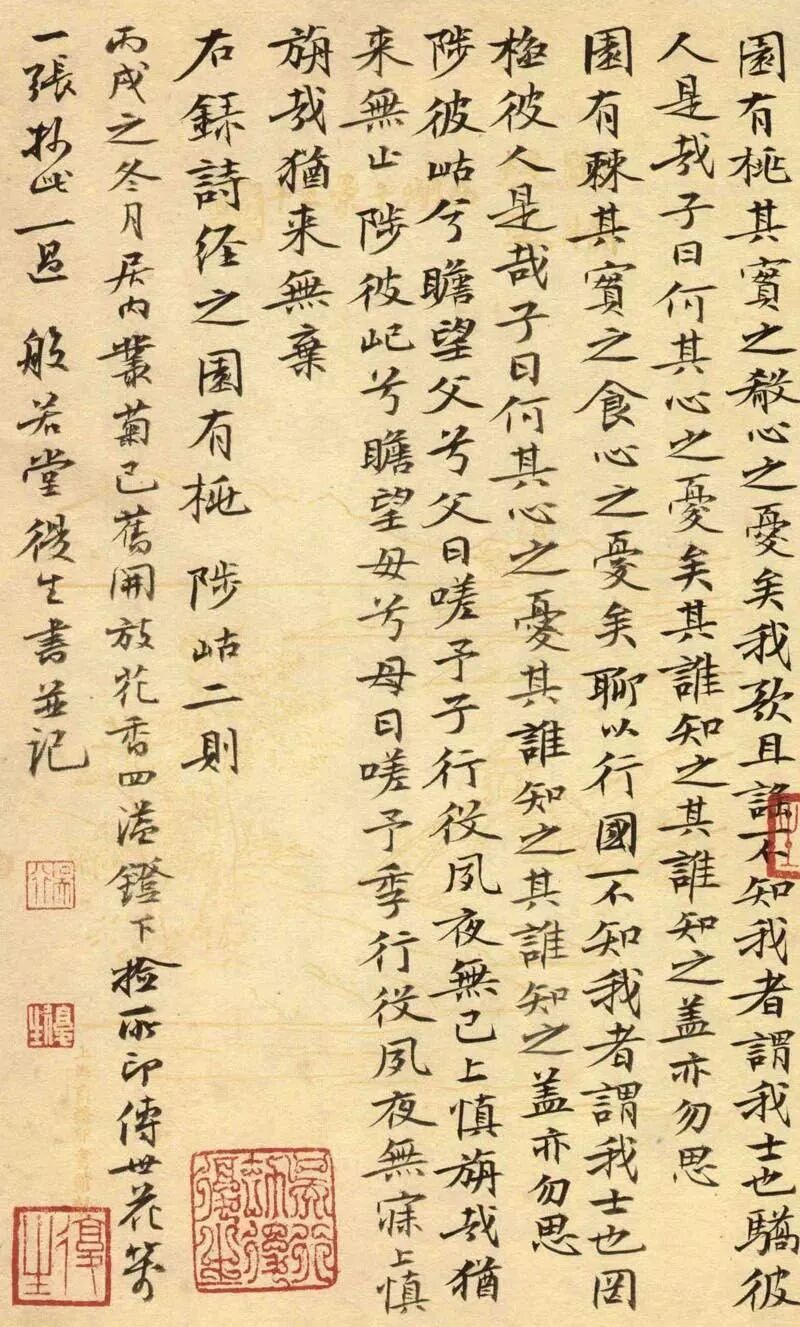 園有桃其實之殽心之憂矣我歌且謠不知我者謂我士也驕彼
人是哉子曰何其心之憂矣其誰知之其誰知之盖亦勿思
園有棘其實之食心之憂矣聊以行國不知我者謂我士也罔
極彼人是哉子曰何其心之憂其誰知之其誰知之盖亦勿思
陟彼岵兮瞻望父兮父曰嗟予子行役夙夜無已上慎旃哉猶
来無止陟彼屺兮瞻望母兮母曰嗟予季行役夙夜無寐上慎
旃哉猶来無棄
右録詩経之園有桃 陟岵二則
丙戌之冬月居内叢菊已舊開放花香四溢鐙下捡所印傳世花箋
一張抄此一過 般若堂復生書並记
復生